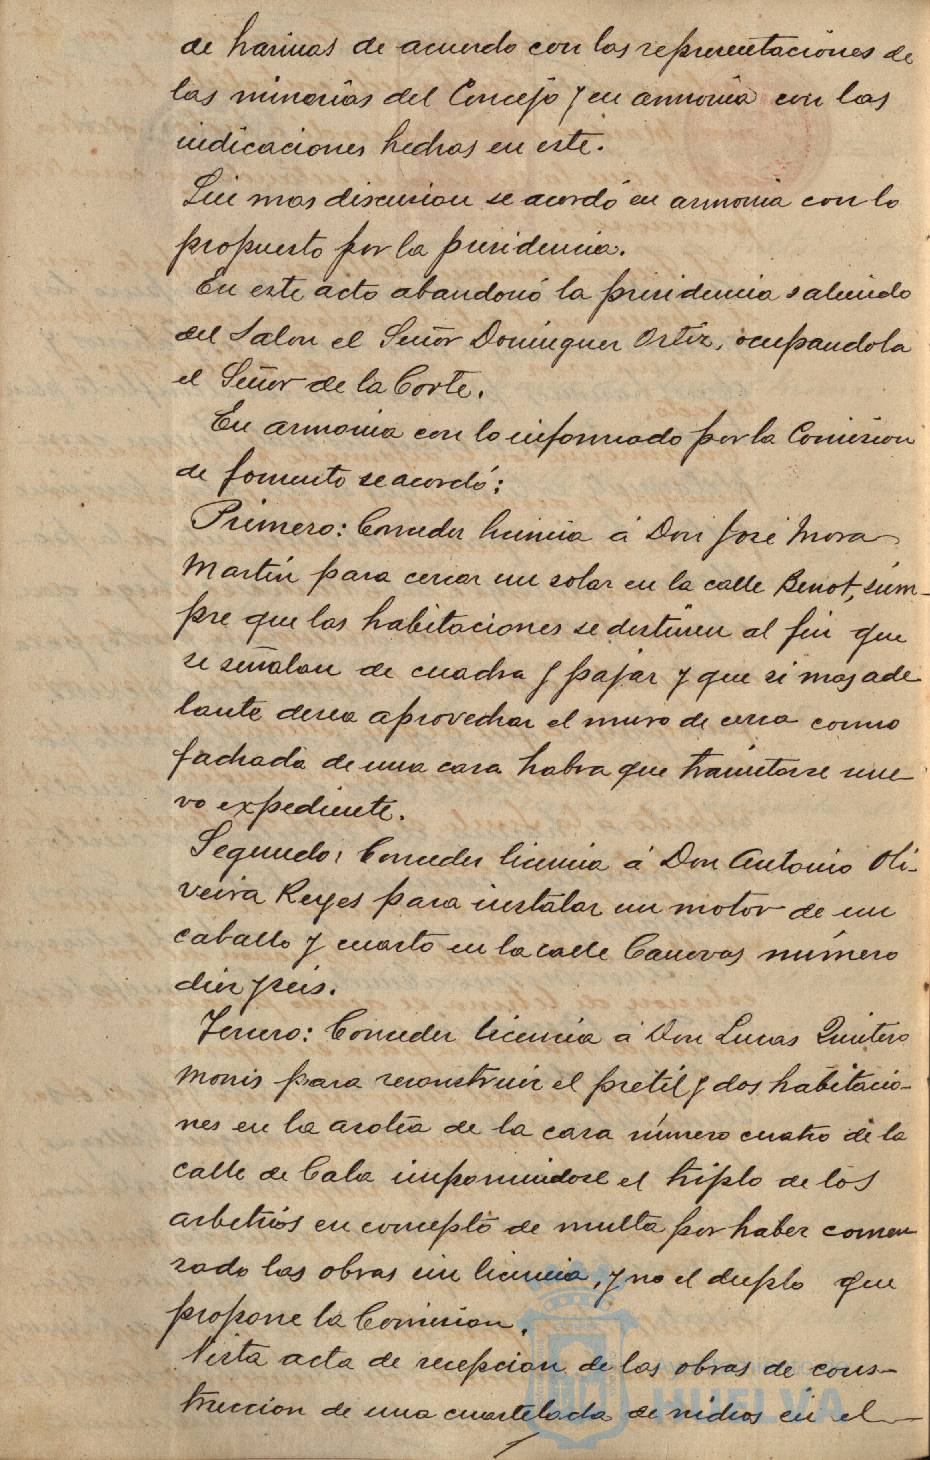 de harinas de acuerdo con las representaciones de
las minorias del Concejo y en armonia con las
indicaciones hechas en este.
Sin mas discusion se acordó en armonia con lo
propuesto por la presidencia.
En este acto abandonó la presidencia saliendo
del Salon el Señor Dominguez Ortiz, ocupandola
el Señor de la Corte.
En armonia con lo informado por la Comision
de fomento se acordó:
Primero: Conceder licencia á Don José Mora
Martin para cercar un solar en la calle Benot, siem-
pre que las habitaciones se destinen al fin que
se señalan de cuadra y pajar y que si mas ade
lante desea aprovechar el muro de cerca como
fachada de una casa habra que tramitarse nue-
vo expediente.
Segundo: Conceder licencia á Don Antonio Oli-
veira Reyes para instalar un motor de un
caballo y cuarto en la calle Canovas número
diez y seis.
Tercero: Conceder licencia á Don Lucas Quintero
Monis para reconstruir el pretil y dos habitacio-
nes en la azotea de la casa número cuatro de la
calle de Cala imponiendose el triplo de los
arbitrios en concepto de multa por haber comen
zado las obras sin licencia, y no el duplo que
propone la Comision.
Vista acta de recepcion de las obras de cons-
truccion de una cuartelada de nidos en el
HUELVA